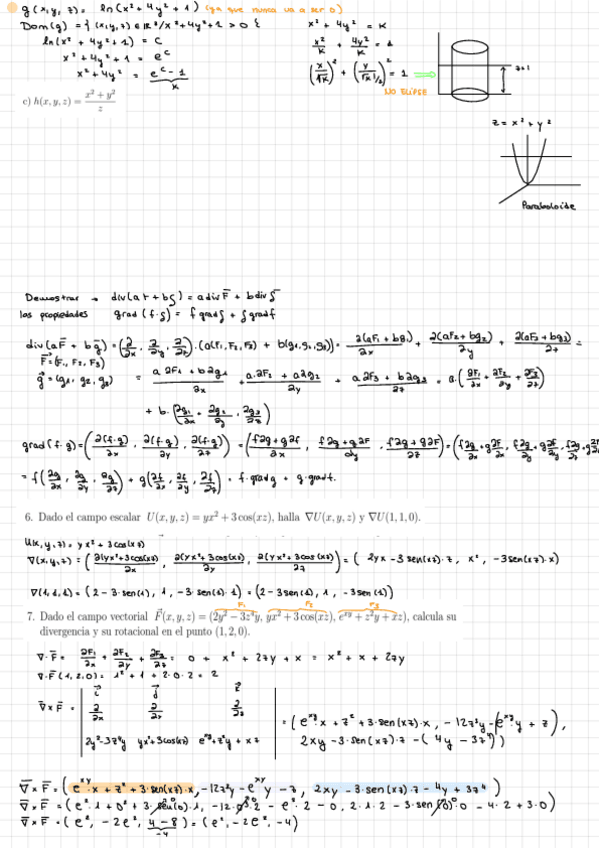 g(x,y,z) = ln(x² + 4y² + 1) (ya que nunca va a ser 0)
Dom(g) = {(x,y,z) ∈ ℝ³/x²+4y²+1 > 0}
ln(x² + 4y² + 1) = C
x² + 4y² + 1 = e^C
x² + 4y² = e^C - 1
K
x² + 4y² = K
x²/K + 4y²/K = 1
(x/√K)² + (y/√K/2)² = 1
NO ELIPSE
z=1
c) h(x, y, z) = (x² + y²)/z
z = x² + y²
Paraboloide
Demostrar → div(aF + bg) = a div F + b div g
las propiedades grad (f·g) = f grad g + g grad f
div(aF + bg) = (∂/∂x, ∂/∂y, ∂/∂z)·(a(F₁, F₂, F₃) + b(g₁, g₂, g₃)) = ∂(aF₁ + bg₁)/∂x + ∂(aF₂ + bg₂)/∂y + ∂(aF₃ + bg₃)/∂z =
F = (F₁, F₂, F₃)
g = (g₁, g₂, g₃)
= a∂F₁ + b∂g₁/∂x + a·∂F₂ + a∂g₂/∂y + a∂F₃ + b∂g₃/∂z = a·(∂F₁/∂x + ∂F₂/∂y + ∂F₃/∂z)
+ b·(∂g₁/∂x + ∂g₂/∂y + ∂g₃/∂z)
grad(f·g) = (∂(f·g)/∂x, ∂(f·g)/∂y, ∂(f·g)/∂z) = (f∂g + g∂f/∂x, f∂g + g∂f/∂y, f∂g + g∂f/∂z) = (f∂g/∂x + g∂f/∂x, f∂g/∂y + g∂f/∂y, f∂g/∂z + g∂f/∂z)
= f(∂g/∂x, ∂g/∂y, ∂g/∂z) + g(∂f/∂x, ∂f/∂y, ∂f/∂z) = f·grad g + g·grad f.
6. Dado el campo escalar U(x, y, z) = yx² + 3 cos(xz), halla ∇U(x, y, z) y ∇U(1, 1, 0).
U(x,y,z) = yx² + 3cos(xz)
∇(x,y,z) = (∂(yx²+3cos(xz))/∂x, ∂(yx²+3cos(xz))/∂y, ∂(yx²+3cos(xz))/∂z) = (2yx - 3sen(xz)·z, x², -3sen(xz)·x)
∇(1,1,1) = (2 - 3·sen(1), 1, -3·sen(1)·1) = (2 - 3sen(1), 1, -3sen(1))
F₁ F₂ F₃
7. Dado el campo vectorial F⃗(x, y, z) = (2y² − 3z⁴y, yx² + 3 cos(xz), e^xy + z²y + xz), calcula su
divergencia y su rotacional en el punto (1, 2, 0).
∇·F = ∂F₁/∂x + ∂F₂/∂y + ∂F₃/∂z = 0 + x² + 2zy + x = x² + x + 2zy
∇·F(1,2,0) = 1² + 1 + 2·0·2 = 2
∇×F =
i j k
∂/∂x ∂/∂y ∂/∂z
2y²-3z⁴y yx²+3cos(xz) e^xy+z²y + xz
= (e^xy·x + z² + 3·sen(xz)·x, -12z³y - (e^xy·y + z),
2xy - 3·sen(xz)·z - (4y - 3z⁴))
∇×F = (e^xy·x + z² + 3·sen(xz)·x, -12z³y - e^xy y - z, 2xy - 3·sen(xz)·z - 4y + 3z⁴)
∇×F = (e²·1 + 0² + 3·sen(0)·1, -12·0·2 - e²·2 - 0, 2·1·2 - 3·sen(0)·0 - 4·2 + 3·0)
∇×F = (e², -2e², 4 - 8) = (e², -2e², -4)